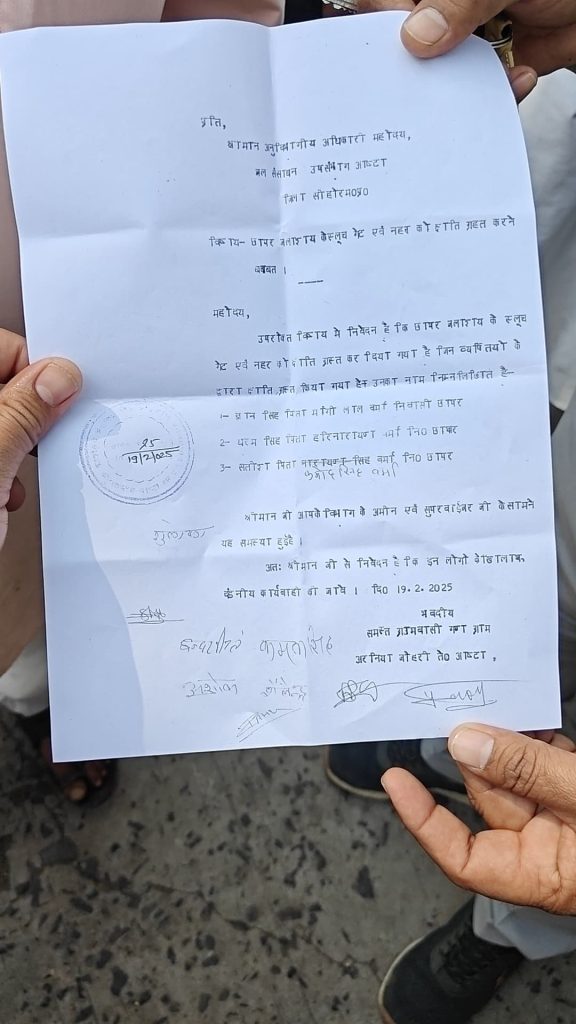 प्रति,
श्रीमान अनुविभागीय अधिकारी महोदय,
जल संसाधन उपसंभाग आष्टा
जिला सीहोर म०प्र०
विषय- छापर जलाशय के स्लूच गेट एवं नहर को क्षति ग्रस्त करने
बाबत ।
महोदय,
उपरोक्त विषय मे निवेदन है कि छापर जलाशय के स्लूच
गेट एवं नहर को क्षति ग्रस्त कर दिया गया है जिन व्यक्तियो के
द्वारा क्षति ग्रस्त किया गया है उनका नाम निम्नलिखित है-
1- ज्ञान सिंह पिता मांगी लाल वर्मा निवासी छापर
2- धरम सिंह पिता हरिनारायण वर्मा नि० छापर
3- सतीश पिता नारायण सिंह वर्मा नि० छापर
वर्मा
25
19/2/2025
श्रीमान जी आपके विभाग के अमीन एवं सुपरवाईजर जी के सामने
यह समस्या हुई है ।
अतः श्रीमान जी से निवेदन है कि इन लोगो के खिलाफ
वैधानिक कार्यवाही की जावे । दि० 19.2.2025
भवदीय
समस्त ग्रामवासी गण ग्राम
अरनिया जोहरी ते० आष्टा ,
कमल सिंह
अशोक